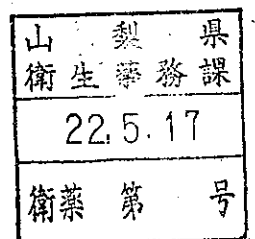 山梨県
衛生薬務課
22.5.17
衛薬第　号